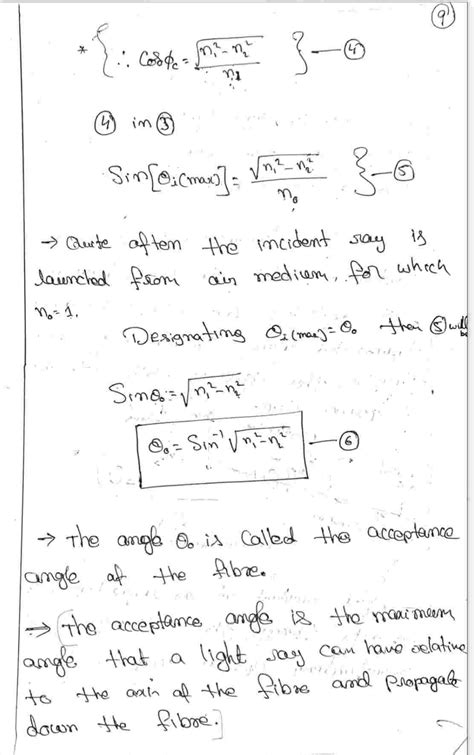 9
* { ∴ Cosϕc = √(n₁² - n₂²) / n₁ } — ④
④ in ③
Sin[θi(max)] = √(n₁² - n₂²) / n₀ } — ⑤
→ Quite often the incident ray is
launched from air medium, for which
n₀ = 1.
Designating θi(max) = θ₀ then ⑤ will be
Sinθ₀ = √(n₁² - n₂²)
θ₀ = Sin⁻¹ √(n₁² - n₂²) — ⑥
→ The angle θ₀ is called the acceptance
angle of the fibre.
→ [The acceptance angle is the maximum
angle that a light ray can have relative
to the axis of the fibre and propagate
down the fibre.]